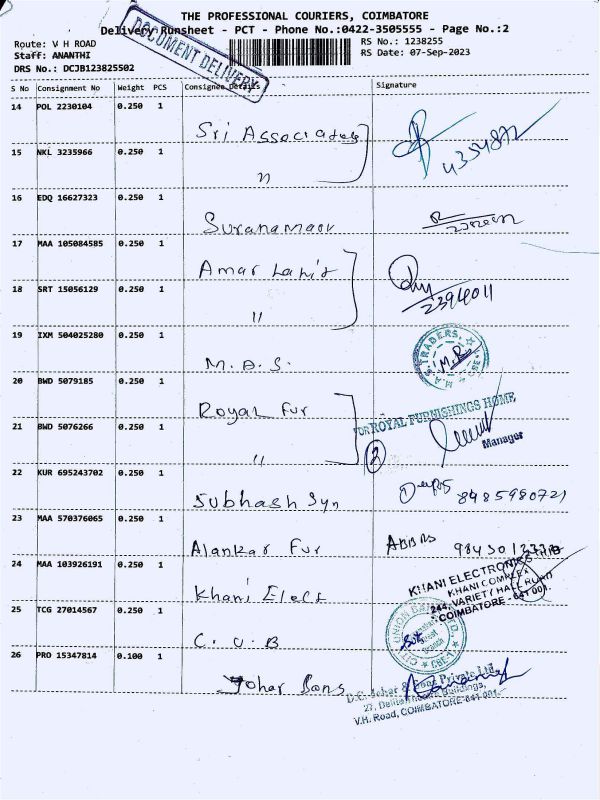 THE PROFESSIONAL COURIERS, COIMBATORE
Delivery Runsheet - PCT - Phone No.:0422-3505555 - Page No.:2
Route: V H ROAD
Staff: ANANTHI
DRS No.: DCJB123825502
DOCUMENT DELIVERY
RS No.: 1238255
RS Date: 07-Sep-2023
S No Consignment No Weight PCS Consignee Details Signature
14 POL 2230104 0.250 1 Sri Associates
15 NKL 3235966 0.250 1 "
4354872
16 EDQ 16627323 0.250 1
17 MAA 105084585 0.250 1 Amar
18 SRT 15056129 0.250 1 "
2394011
19 IXM 504025280 0.250 1 M.A.S.
M.A.S. TRADERS,
20 BWD 5079185 0.250 1 Royal Fur
21 BWD 5076266 0.250 1 "
2
FOR ROYAL FURNISHINGS HOME
Manager
22 KUR 695243702 0.250 1 Subhash Syn
8485980721
23 MAA 570376065 0.250 1 Alankar Fur
24 MAA 103926191 0.250 1 Khani Elect
KHANI ELECTRONICS
KHANI COMPLEX
244, VARIETY HALL ROAD
COIMBATORE - 641 001.
25 TCG 27014567 0.250 1 C.U.B
CITY UNION BANK LTD.
26 PRO 15347814 0.100 1 Johar Sons
D.C. Johar & Sons Private Ltd.
27, Buildings,
V.H. Road, COIMBATORE-641 001.